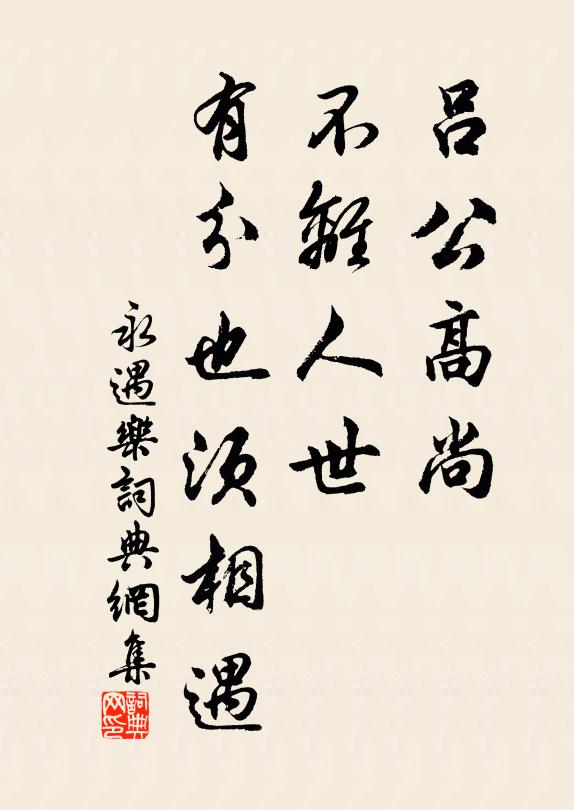 呂公高尚
不離人世
有分也須相遇
永遇樂詞典網集
詞典网印